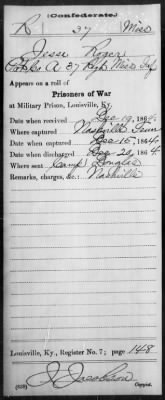 (Confederate.)
R 37 Miss
Jesse Roger
A 37 Regt Miss Inf
Appears on a roll of
Prisoners of War
at Military Prison, Louisville, Ky.
Date received Dec 19, 1864.
Where captured Nashville Tenn
Date when captured Dec 15, 1864
Date when discharged Dec 20, 1864
Where sent Camp Douglas
Remarks, charges, &c.: Nashville
Louisville, Ky., Register No. 7; page 148
J. Jacobson